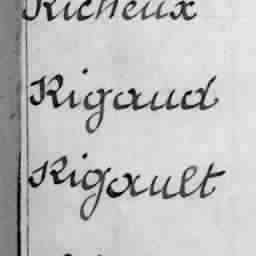 Richeux
Rigaud
Rigault